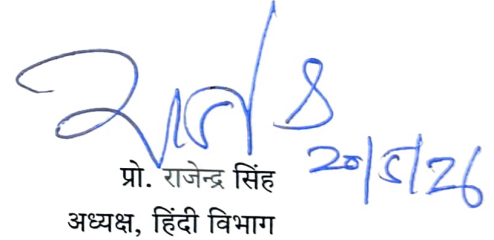 20/5/26
प्रो. राजेन्द्र सिंह
अध्यक्ष, हिंदी विभाग